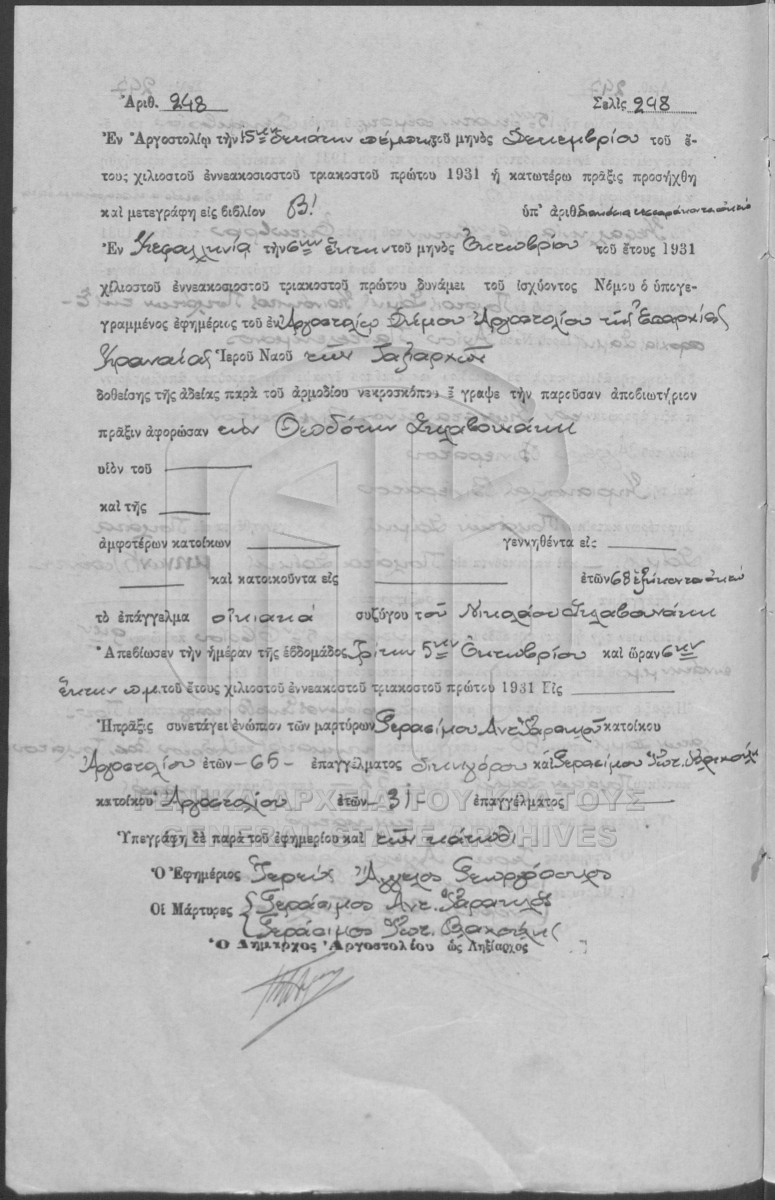 Ἀριθ. 248 Σελὶς 248
Ἐν Ἀργοστολίῳ τὴν 15ην δεκάτην πέμπτην τοῦ μηνὸς Δεκεμβρίου τοῦ ἔ-
τους χιλιοστοῦ ἐννεακοσιοστοῦ τριακοστοῦ πρώτου 1931 ἡ κατωτέρω πρᾶξις προσήχθη
καὶ μετεγράφη εἰς βιβλίον Β! ὑπ' ἀριθ. διακόσια τεσσαράκοντα ὀκτώ
Ἐν Κεφαλληνίᾳ τὴν 6ην ἕκτην τοῦ μηνὸς Ὀκτωβρίου τοῦ ἔτους 1931
χιλιοστοῦ ἐννεακοσιοστοῦ τριακοστοῦ πρώτου δυνάμει τοῦ ἰσχύοντος Νόμου ὁ ὑπογε-
γραμμένος ἐφημέριος τοῦ ἐν Ἀργοστολίῳ Δήμου Ἀργοστολίου τῆς Ἐπαρχίας
Κραναίας Ἱεροῦ Ναοῦ τῶν Ταξιαρχῶν
δοθείσης τῆς ἀδείας παρὰ τοῦ ἁρμοδίου νεκροσκόπου ἔγραψε τὴν παρεῦσαν ἀποβιωτήριον
πρᾶξιν ἀφορῶσαν τὴν Θεοδότην Σκλαβουνάκη
υἱὸν τοῦ
καὶ τῆς
ἀμφοτέρων κατοίκων γεννηθέντα εἰς
καὶ κατοικοῦντα εἰς ἐτῶν 68 ἑξήκοντα ὀκτώ
τὸ ἐπάγγελμα οἰκιακά συζύγου τοῦ Νικολάου Σκλαβουνάκη
Ἀπεβίωσεν τὴν ἡμέραν τῆς ἑβδομάδος Τρίτην 5ην Ὀκτωβρίου καὶ ὥραν 6ην
ἕκτην π.μ. τοῦ ἔτους χιλιοστοῦ ἐννεακοσιοστοῦ τριακοστοῦ πρώτου 1931 Εἰς
Ἡ πρᾶξις συνετάγει ἐνώπιον τῶν μαρτύρων Γερασίμου Αντ. κατοίκου
Ἀργοστολίου ἐτῶν - 65 - ἐπαγγέλματος δικηγόρου καὶ Γερασίμου Φωτ.
κατοίκου Ἀργοστολίου ἐτῶν - 31 - ἐπαγγέλματος
Ὑπεγράφη δὲ παρὰ τοῦ ἐφημερίου καὶ τῶν κάτωθι
Ὁ Ἐφημέριος Ἱερεὺς Ἄγγελος Γεωργόπουλος
Οἱ Μάρτυρες Γεράσιμος Αντ.
Γεράσιμος Φωτ.
Ὁ Δήμαρχος Ἀργοστολίου ὡς Ληξίαρχός
ΓΕΝΙΚΑ ΑΡΧΕΙΑ ΤΟΥ ΚΡΑΤΟΥΣ
GENERAL STATE ARCHIVES